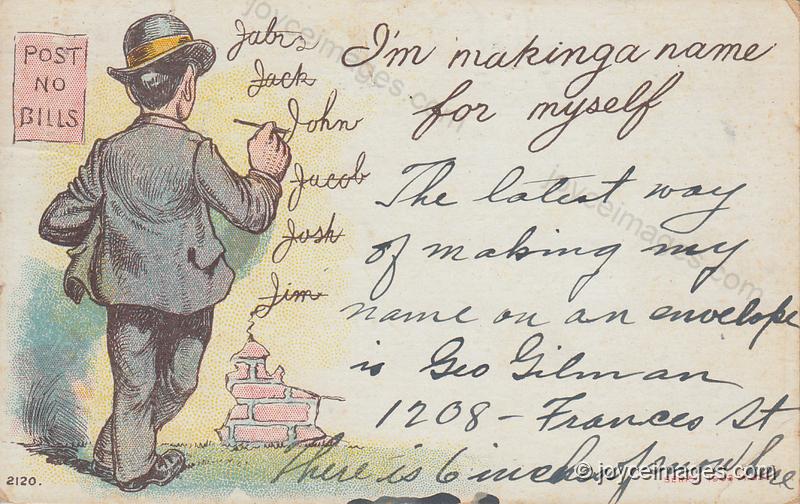 POST
NO
BILLS
Jabez
Jack
John
Jacob
Josh
Jim
I'm making a name
for myself
The latest way
of making my
name on an envelope
is Geo Gilman
1208 - Frances St
There is 6 inches of snow here
2120.
joyceimages.com
joyceimages.com
joyceimages.com
© joyceimages.com